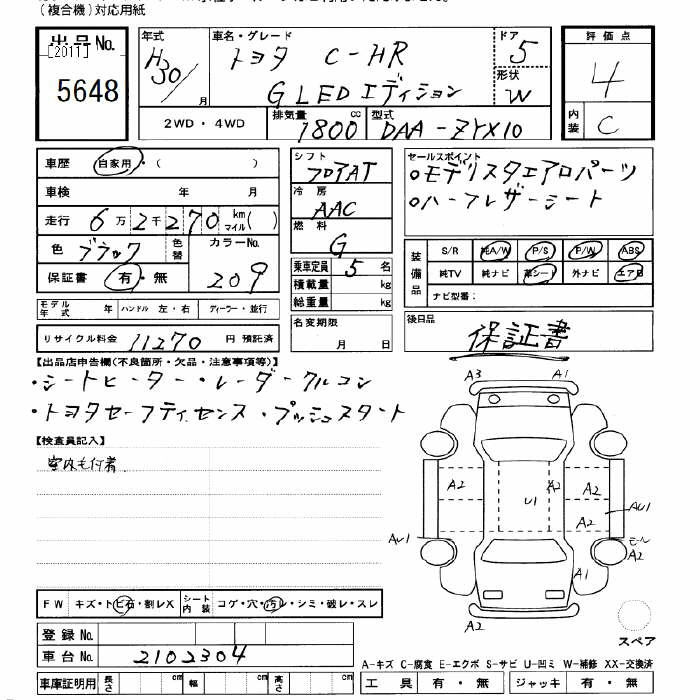 (複合機)対応用紙
出品No.
[2011]
5648
年式
H30/
月
車名・グレード
トヨタ C-HR
G LED エディション
ドア
5
形状
W
2WD・4WD
排気量
1800
cc
型式
DAA-ZYX10
評価点
4
内装
C
車歴 自家用・( )
車検 年 月
走行 6万2千270 km マイル( )
色 ブラック 色替
カラーNo.
209
保証書 有・無
モデル年式 年 ハンドル 左・右 ディーラー・並行
リサイクル料金 11270 円 預託済
シフト
フロアAT
冷房
AAC
燃料
G
乗車定員 5 名
積載量 kg
総重量 kg
名変期限
月 日
セールスポイント
○モデリスタエアロパーツ
○ハーフレザーシート
装備品
S/R 純A/W P/S P/W ABS
純TV 純ナビ 革シート 外ナビ エアB
ナビ型番:
後日品
保証書
【出品店申告欄(不良箇所・欠品・注意事項等)】
・シートヒーター・レーダークルコン
・トヨタセーフティセンス・プッシュスタート
【検査員記入】
室内毛付着
A3 A1
A2 U1 A2 A2
A2
AU1 AU1
モール
A2
A1
A2
スペア
FW キズ・トビ石・割レX シート内装 コゲ・穴・汚レ・シミ・破レ・スレ
登録No.
車台No. 2102304
車庫証明用 長さ cm 幅 cm 高さ cm
A-キズ C-腐食 E-エクボ S-サビ U-凹ミ W-補修 XX-交換済
工具 有・無 ジャッキ 有・無